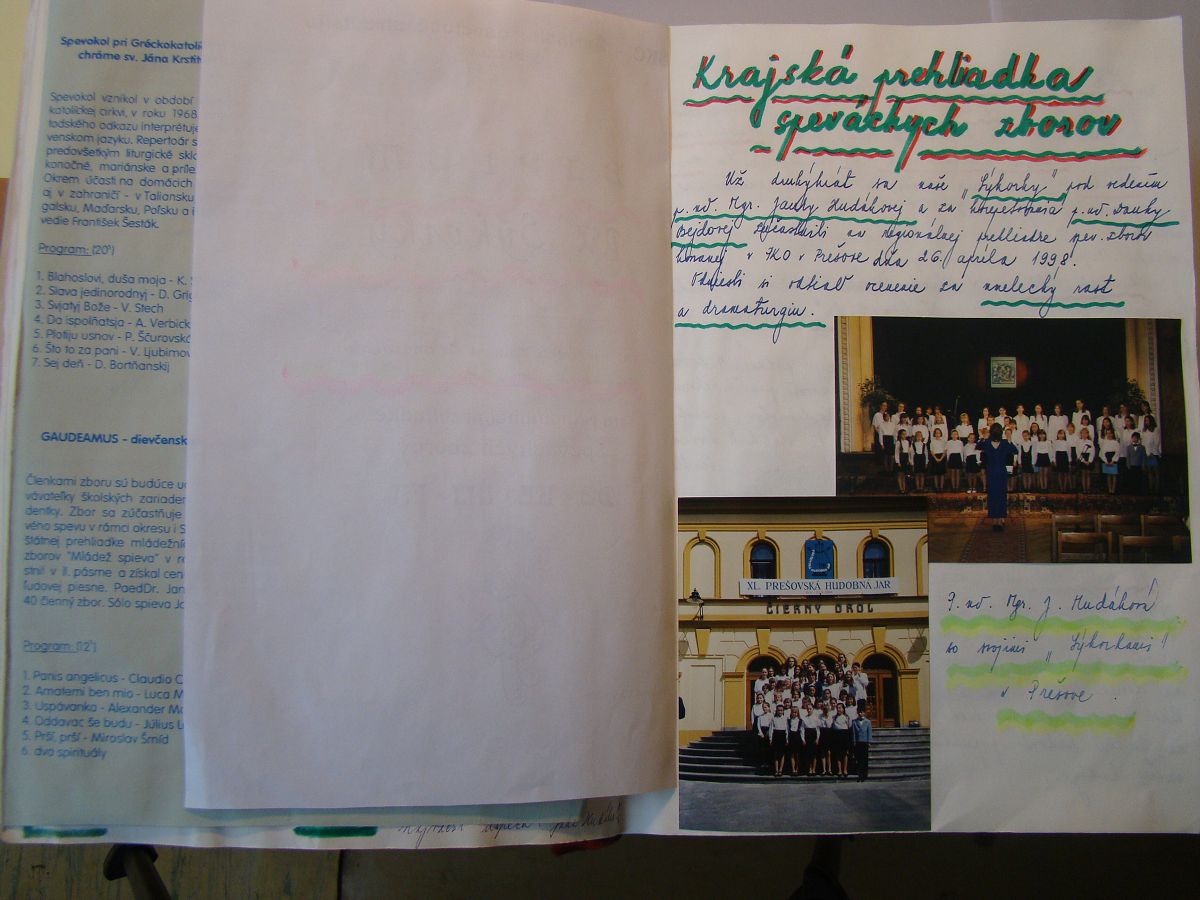 Spevokol pri Gréckokatolí
chráme sv. Jána Krstit
Spevokol vznikol v období
katolíckej cirkvi, v roku 1968
todského odkazu interpretuje
venskom jazyku. Repertoár s
predovšetkým liturgické skla
konočné, mariánske a príle
Okrem účasti na domácich
aj v zahraničí - v Taliansku
galsku, Maďarsku, Poľsku a i
vedie František Šesták.
Program: (20')
1. Blahoslovi, duša moja - K. S
2. Slava jedinorodnyj - D. Grig
3. Svjatyj Bože - V. Stech
4. Da ispolňatsja - A. Verbick
5. Plotiju usnov - P. Ščurovská
6. Što to za pani - V. Ljubimov
7. Sej deň - D. Bortňanskij
GAUDEAMUS - dievčensk
Členkami zboru sú budúce uč
vávateľky školských zariaden
dentky. Zbor sa zúčastňuje
vého spevu v rámci okresu i S
štátnej prehliadke mládežníc
zborov "Mládež spieva" v ro
stnil v II. pásme a získal cen
ľudovej piesne. PaedDr. Jan
40 členný zbor. Sólo spieva Jo
Program: (12')
1. Panis angelicus - Claudio C
2. Amatemi ben mio - Luca M
3. Uspávanka - Alexander Mo
4. Oddavac še budu - Július L
5. Prší, prší - Miroslav Šmíd
6. dva spirituály
Krajská prehliadka
speváckych zborov
Už druhýkrát sa naše "Sýkorky" pod vedením
p. uč. Mgr. Janky Hudákovej a za korepetovania p. uč. Danky
Bejdovej zúčastnili na regionálnej prehliadke spev. zborov
konanej v PKO v Prešove dňa 26. apríla 1998.
Odniesli si odtiaľ ocenenie za umelecký rast
a dramaturgiu.
XL. PREŠOVSKÁ HUDOBNÁ JAR
ČIERNY OROL
P. uč. Mgr. J. Hudáková
so svojimi "Sýkorkami"
v Prešove.